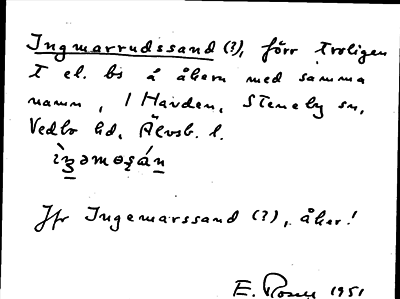 Ingmarrudssand (?), förr troligen
t el. bs å åkern med samma
namn, i Havden, Steneby sn,
Vedbo hd, Älvsb. l.
Jfr Ingemarssand (?), åker!
E. 1951